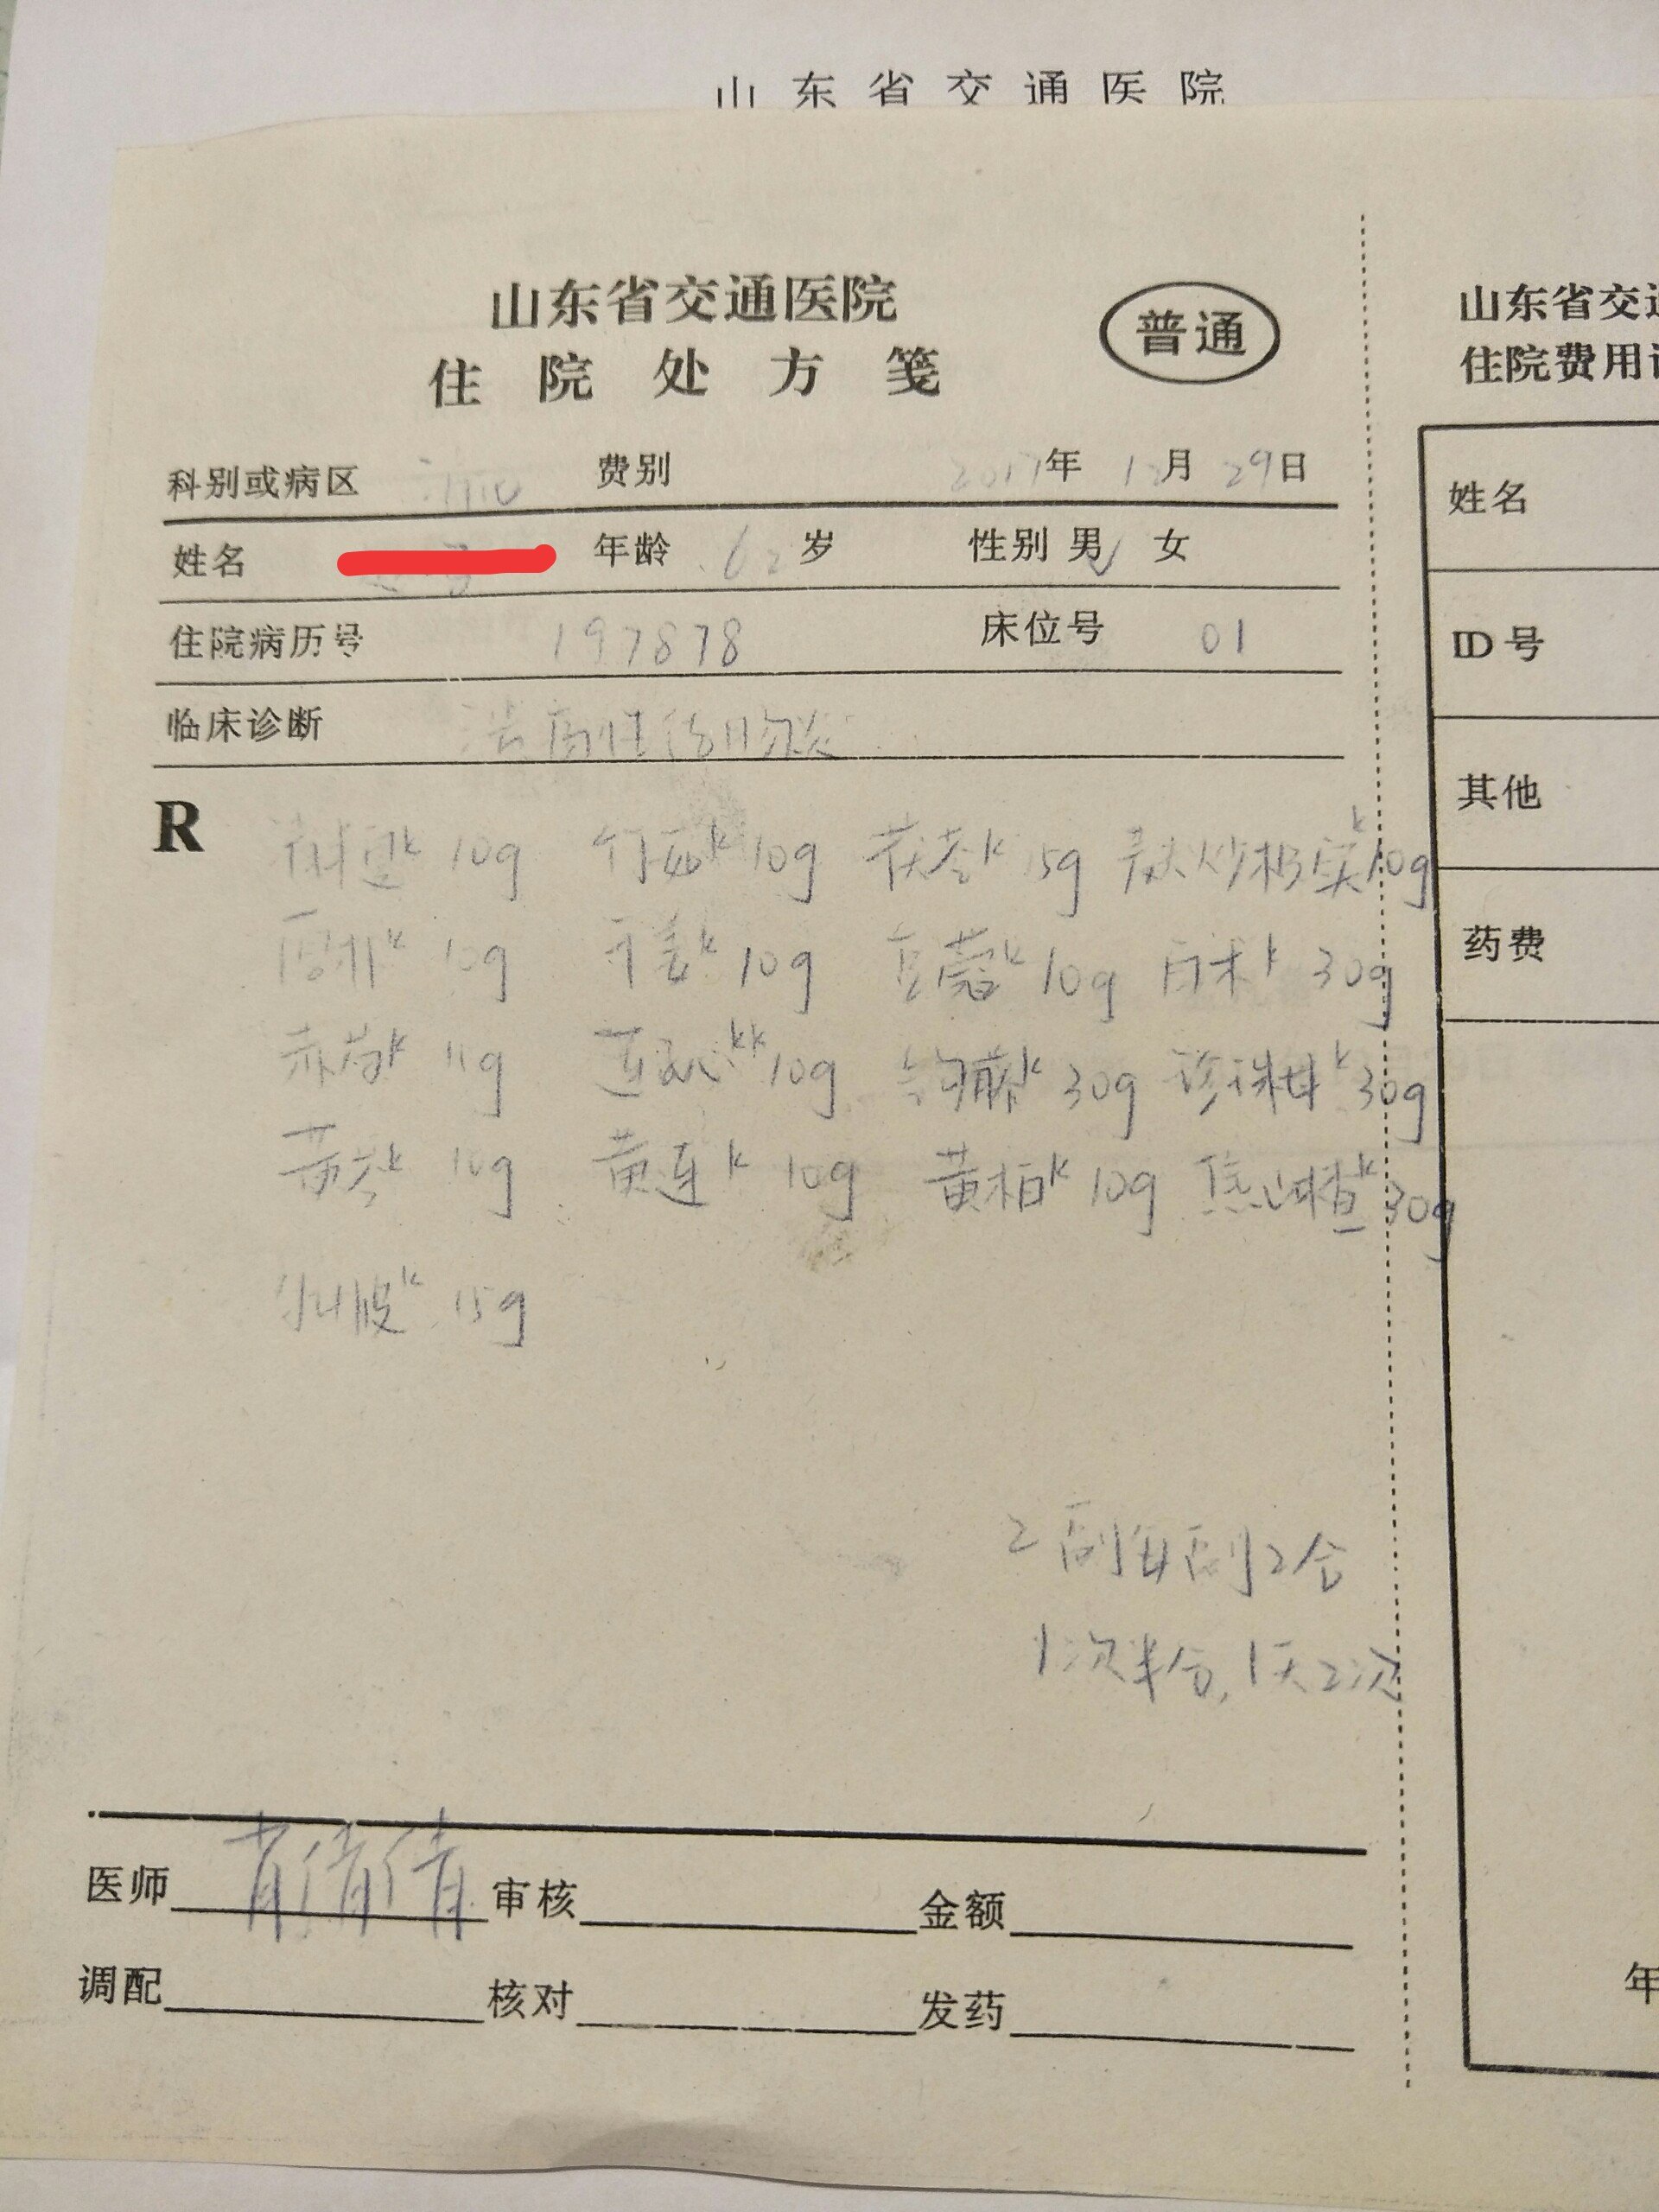 山东省交通医院
山东省交通医院
住院处方笺
普通
科别或病区 费别 2017年 12月 29日
姓名 年龄 62 岁 性别 男√ 女
住院病历号 197878 床位号 01
临床诊断 溃疡性结肠炎
R
10g 竹茹k 10g 茯苓k 15g 麸炒枳实k 10g
厚朴k 10g 干姜k 10g 豆蔻k 10g 白术k 30g
赤芍k 10g 莲子心kk 10g 钩藤k 30g 珍珠母k 30g
黄芩k 10g 黄连k 10g 黄柏k 10g 焦山楂k 30g
15g
2副每副2合
1次半合,1天2次
医师 肖倩倩 审核 金额
调配 核对 发药
山东省交
住院费用
姓名
ID号
其他
药费
年